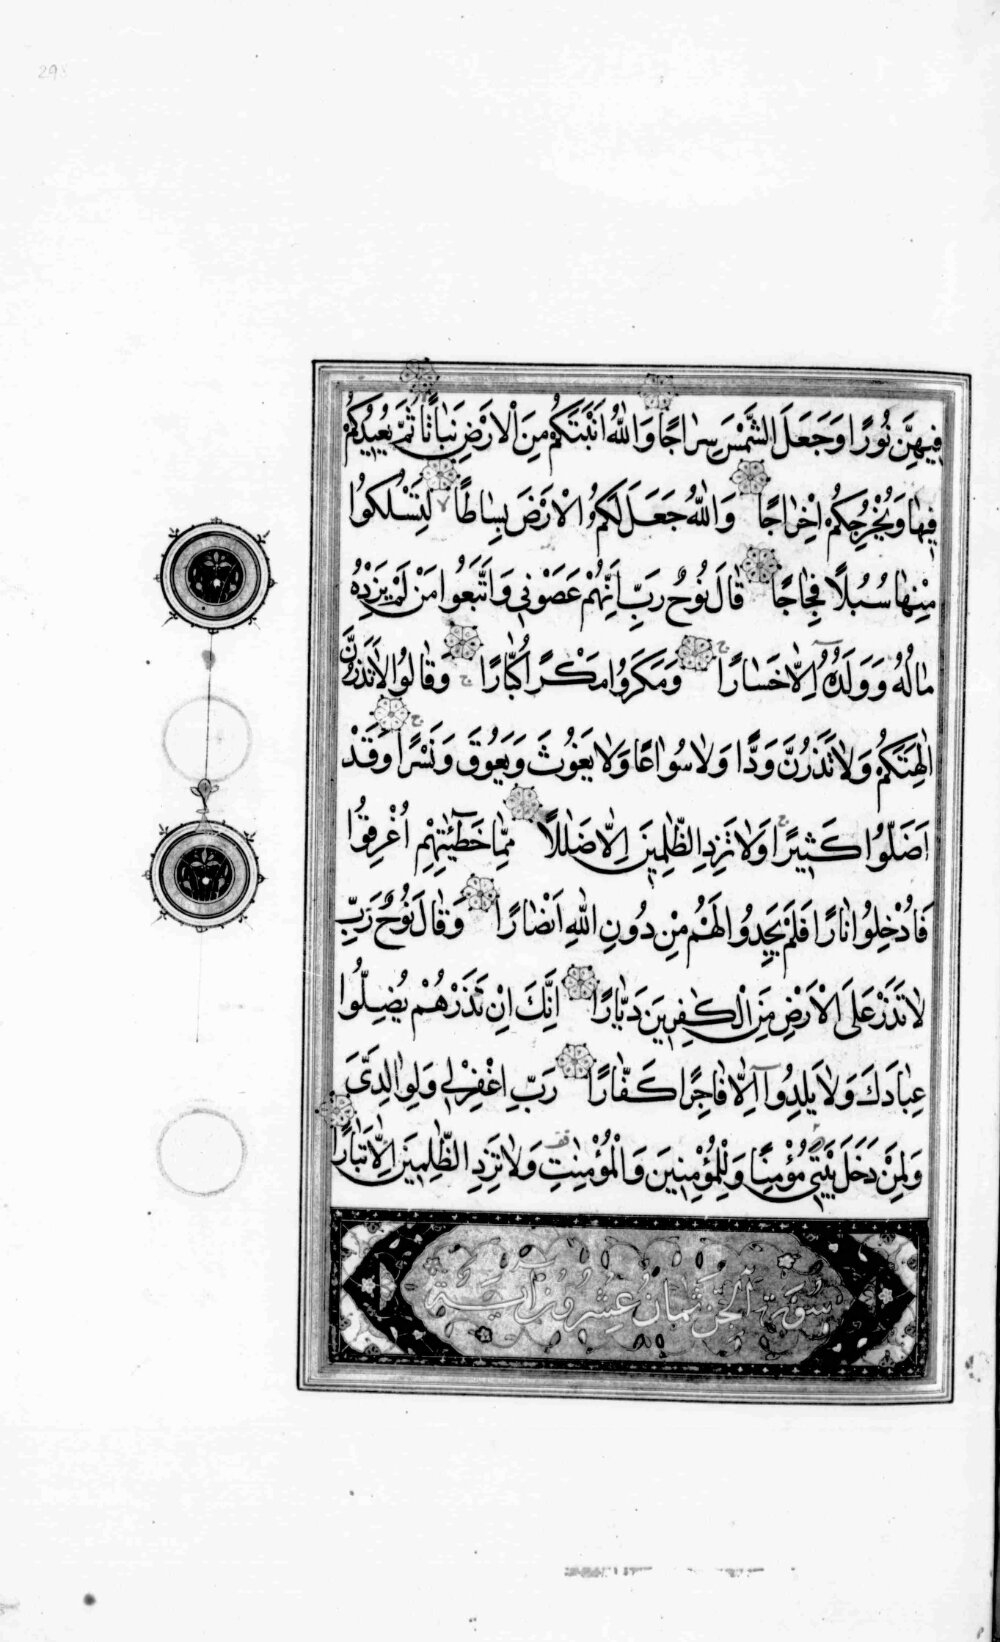 فِيهِنَّ نُورًا وَجَعَلَ الشَّمْسَ سِرَاجًا وَاللّٰهُ اَنْبَتَكُمْ مِنَ الْاَرْضِ نَبَاتًا ثُمَّ يُعِيدُكُمْ
فِيهَا وَيُخْرِجُكُمْ اِخْرَاجًا وَاللّٰهُ جَعَلَ لَكُمُ الْاَرْضَ بِسَاطًا لِتَسْلُكُوا
مِنْهَا سُبُلًا فِجَاجًا قَالَ نُوحٌ رَبِّ اِنَّهُمْ عَصَوْنِي وَاتَّبَعُوا مَنْ لَمْ يَزِدْهُ
مَالُهُ وَوَلَدُهُ اِلَّا خَسَارًا وَمَكَرُوا مَكْرًا كُبَّارًا وَقَالُوا لَا تَذَرُنَّ
اٰلِهَتَكُمْ وَلَا تَذَرُنَّ وَدًّا وَلَا سُوَاعًا وَلَا يَغُوثَ وَيَعُوقَ وَنَسْرًا وَقَدْ
اَضَلُّوا كَثِيرًا وَلَا تَزِدِ الظّٰلِمِينَ اِلَّا ضَلٰلًا مِمَّا خَطٓيـٰٔتِهِمْ اُغْرِقُوا
فَاُدْخِلُوا نَارًا فَلَمْ يَجِدُوا لَهُمْ مِنْ دُونِ اللّٰهِ اَنْصَارًا وَقَالَ نُوحٌ رَبِّ
لَا تَذَرْ عَلَى الْاَرْضِ مِنَ الْكٰفِرِينَ دَيَّارًا اِنَّكَ اِنْ تَذَرْهُمْ يُضِلُّوا
عِبَادَكَ وَلَا يَلِدُوٓا اِلَّا فَاجِرًا كَفَّارًا رَبِّ اغْفِرْ لِي وَلِوَالِدَيَّ
وَلِمَنْ دَخَلَ بَيْتِي مُؤْمِنًا وَلِلْمُؤْمِنِينَ وَالْمُؤْمِنٰتِ وَلَا تَزِدِ الظّٰلِمِينَ اِلَّا تَبَارًا
سورة الجن ثمان عشرون آية